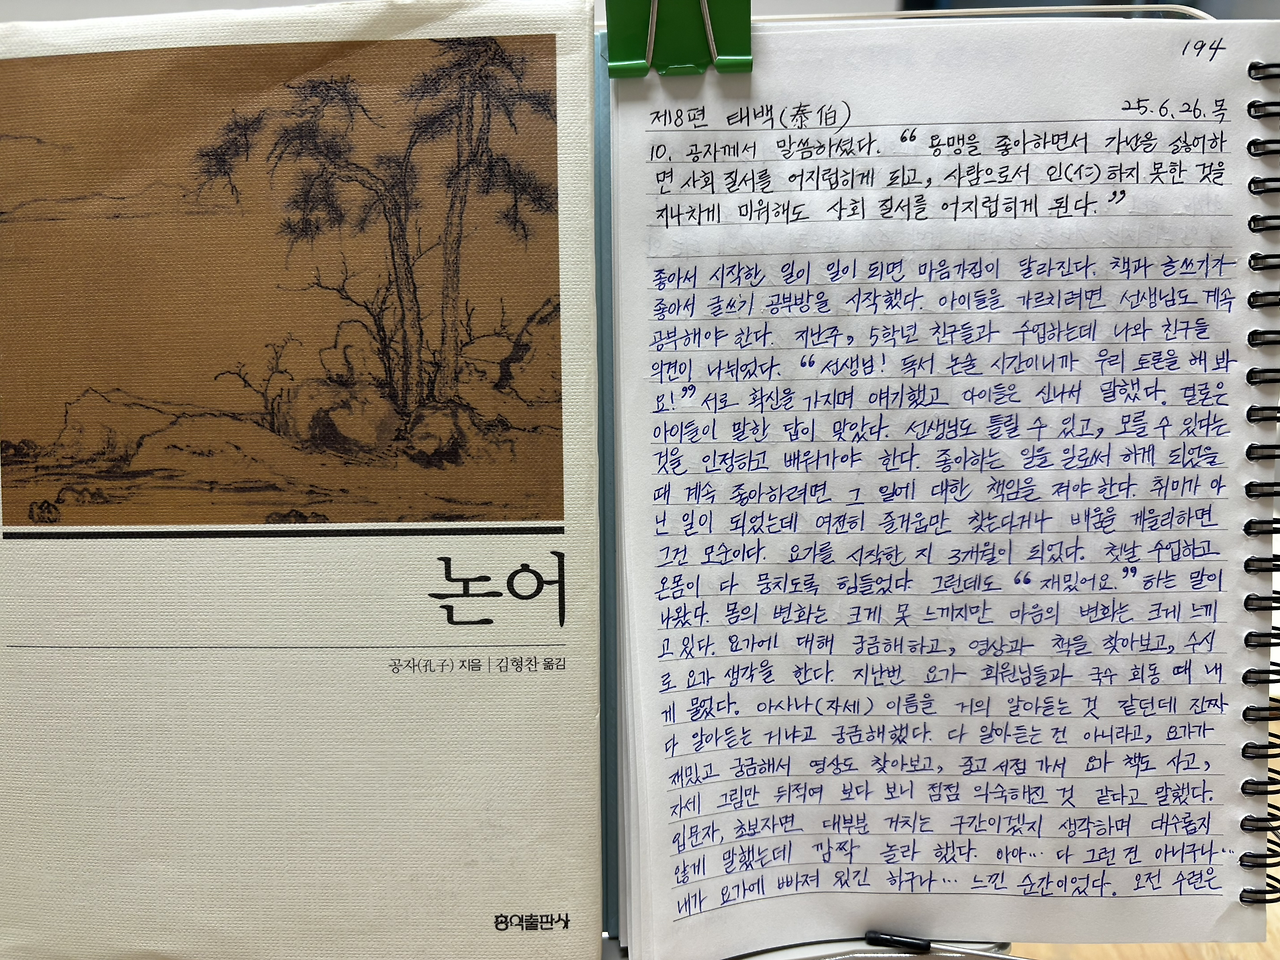 논어
공자(孔子) 지음 | 김형찬 옮김
홍익출판사
194
제8편 태백(泰伯) 25.6.26.목
10. 공자께서 말씀하셨다. “용맹을 좋아하면서 가난을 싫어하
면 사회 질서를 어지럽히게 되고, 사람으로서 인(仁)하지 못한 것을
지나치게 미워해도 사회 질서를 어지럽히게 된다.”
좋아서 시작한 일이 일이 되면 마음가짐이 달라진다. 책과 글쓰기가
좋아서 글쓰기 공부방을 시작했다. 아이들을 가르치려면 선생님도 계속
공부해야 한다. 지난주, 5학년 친구들과 수업하는데 나와 친구들
의견이 나뉘었다. “선생님! 독서 논술 시간이니까 우리 토론을 해 봐
요!” 서로 확신을 가지며 얘기했고 아이들은 신나서 말했다. 결론은
아이들이 말한 답이 맞았다. 선생님도 틀릴 수 있고, 모를 수 있다는
것을 인정하고 배워가야 한다. 좋아하는 일을 일로써 하게 되었을
때 계속 좋아하려면 그 일에 대한 책임을 져야 한다. 취미가 아
닌 일이 되었는데 여전히 즐거움만 찾는다거나 배움을 게을리하면
그건 모순이다. 요가를 시작한 지 3개월이 되었다. 첫날 수업하고
온몸이 다 뭉치도록 힘들었다. 그런데도 “재밌어요.” 하는 말이
나왔다. 몸의 변화는 크게 못 느끼지만 마음의 변화는 크게 느끼
고 있다. 요가에 대해 궁금해하고, 영상과 책을 찾아보고, 수시
로 요가 생각을 한다. 지난번 요가 회원님들과 국수 회동 때 내
게 물었다. 아사나(자세) 이름을 거의 알아듣는 것 같던데 진짜
다 알아듣는 거냐고 궁금해했다. 다 알아듣는 건 아니라고, 요가가
재밌고 궁금해서 영상도 찾아보고, 중고 서점 가서 요가 책도 사고,
자세 그림만 뒤적여 보다 보니 점점 익숙해진 것 같다고 말했다.
입문자, 초보자면 대부분 거치는 구간이겠지 생각하며 대수롭지
않게 말했는데 깜짝 놀라 했다. 아아… 다 그런 건 아니구나…
내가 요가에 빠져 있긴 하구나… 느낀 순간이었다. 오전 수련은